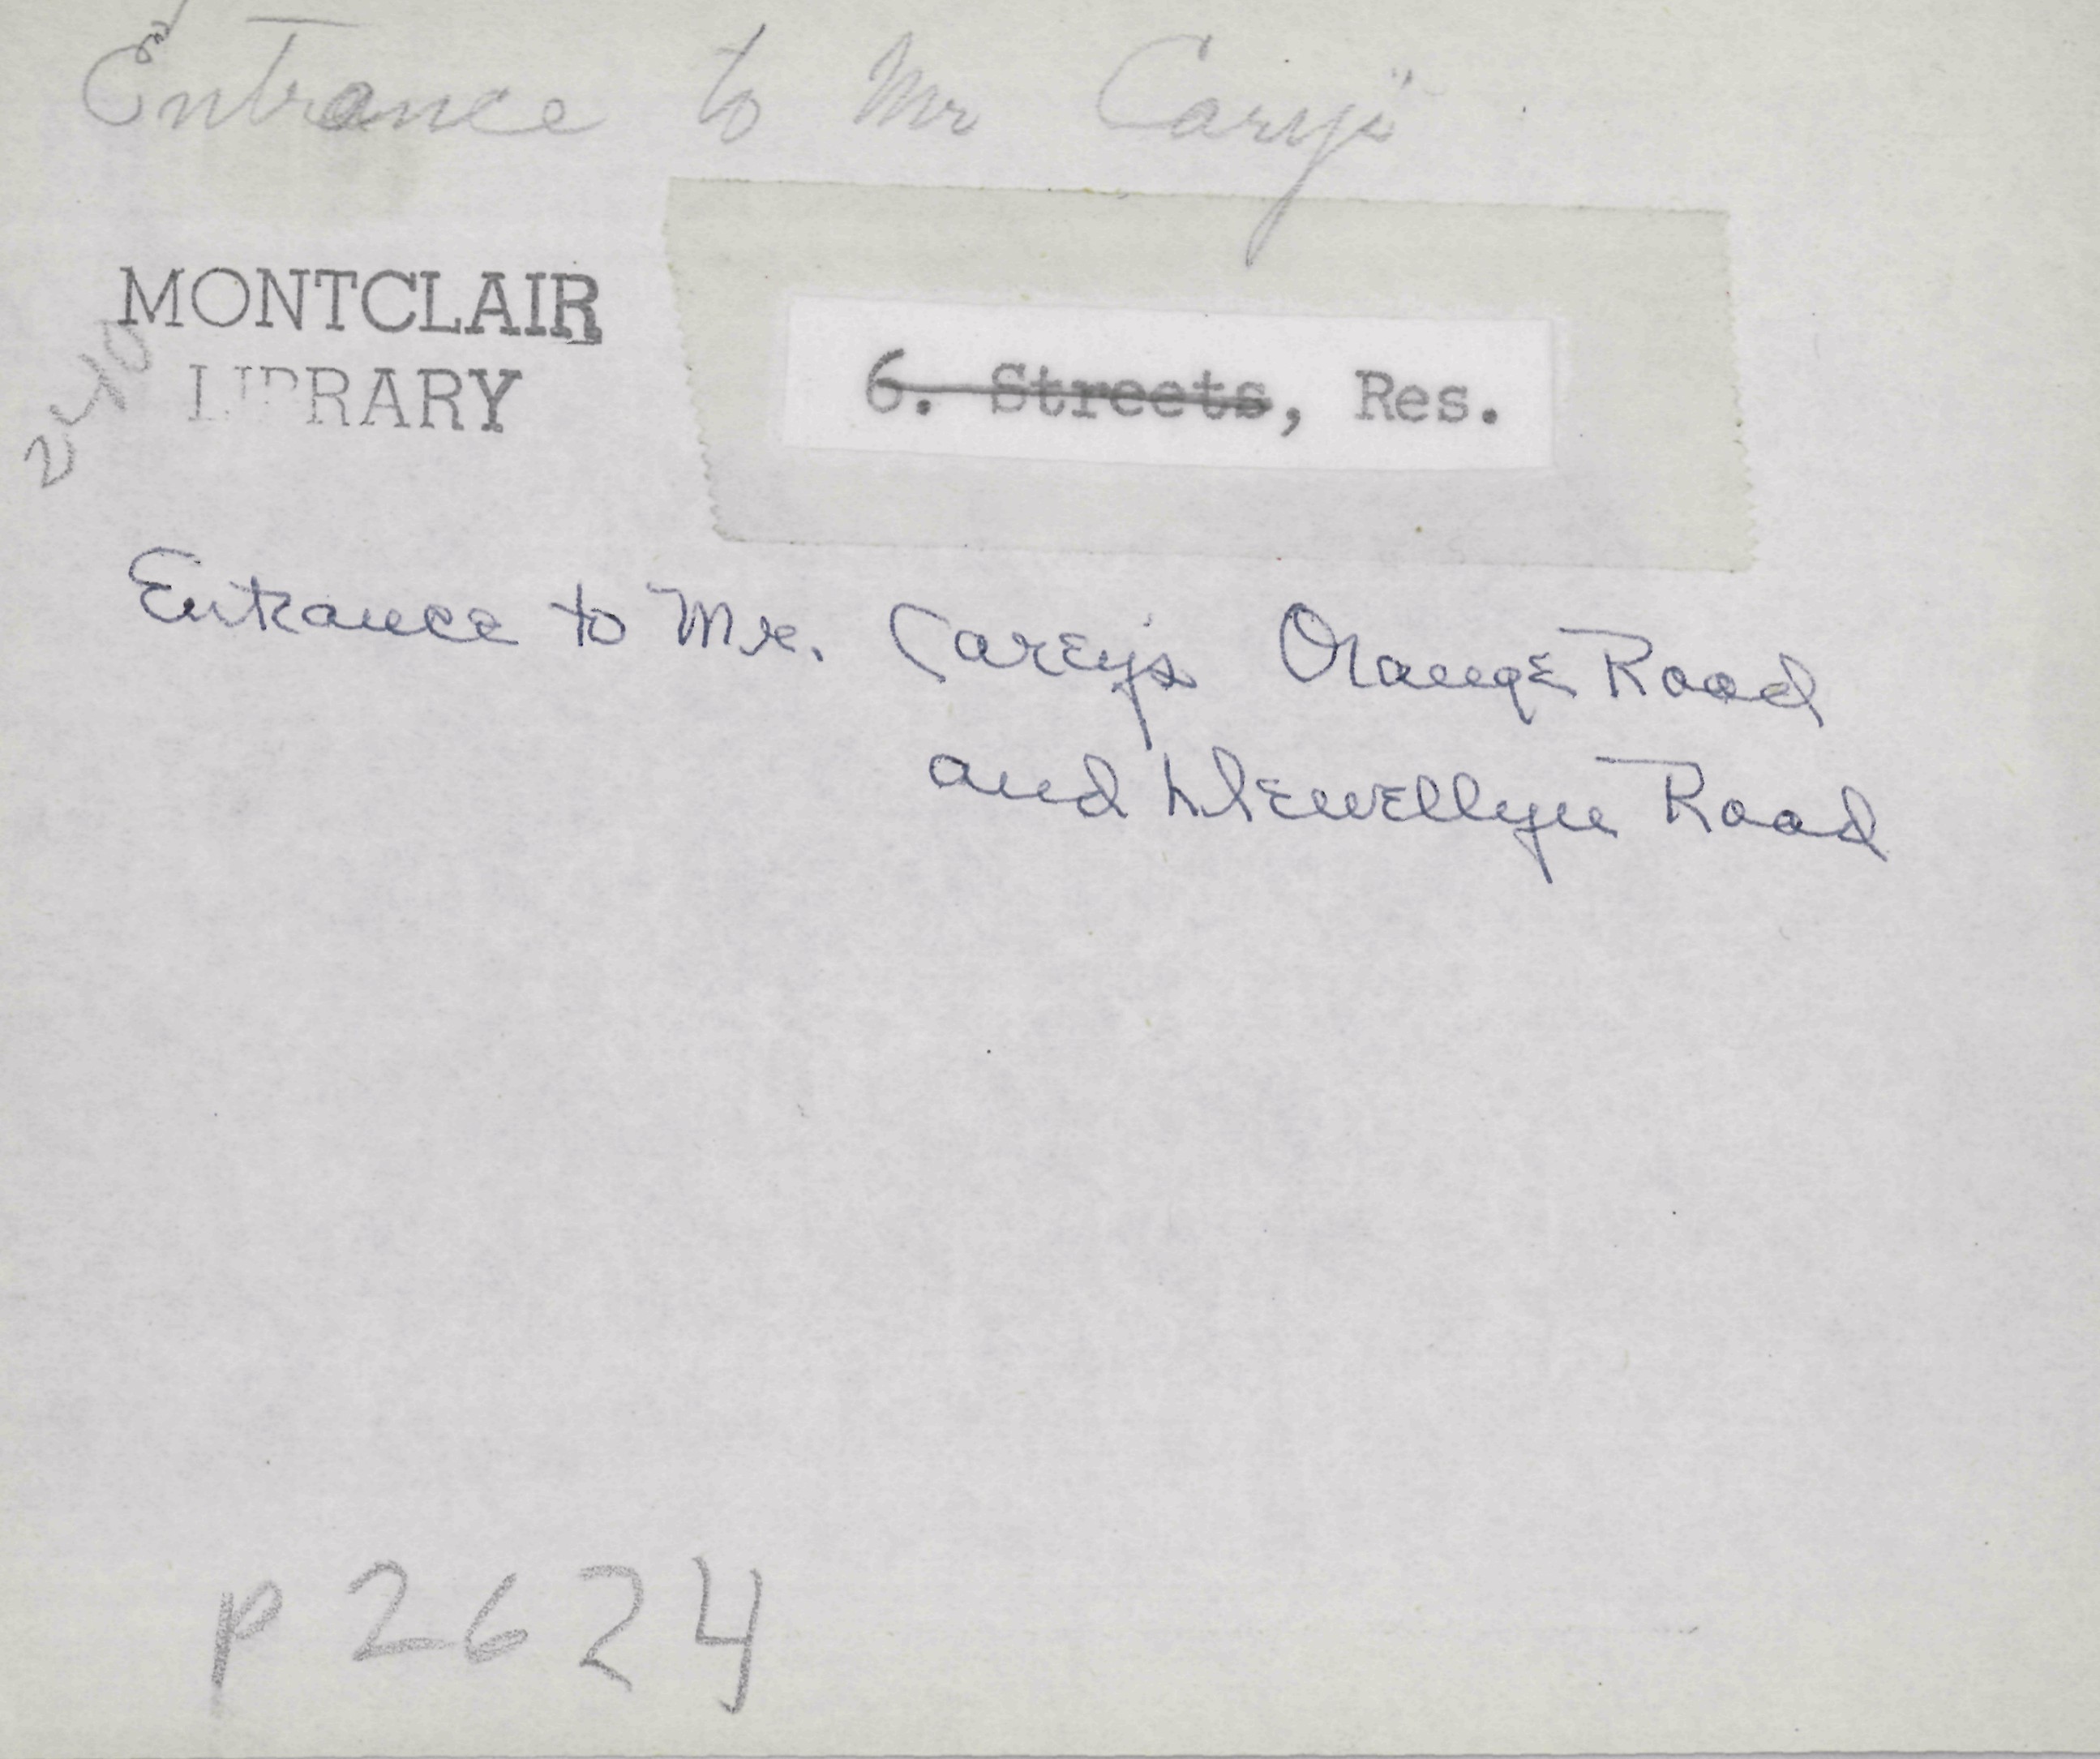 Entrance to Mr Cary's"
MONTCLAIR
LIBRARY
6. Streets, Res.
Entrance to Mr. Carey's Orange Road
and Llewellyn Road
P2624